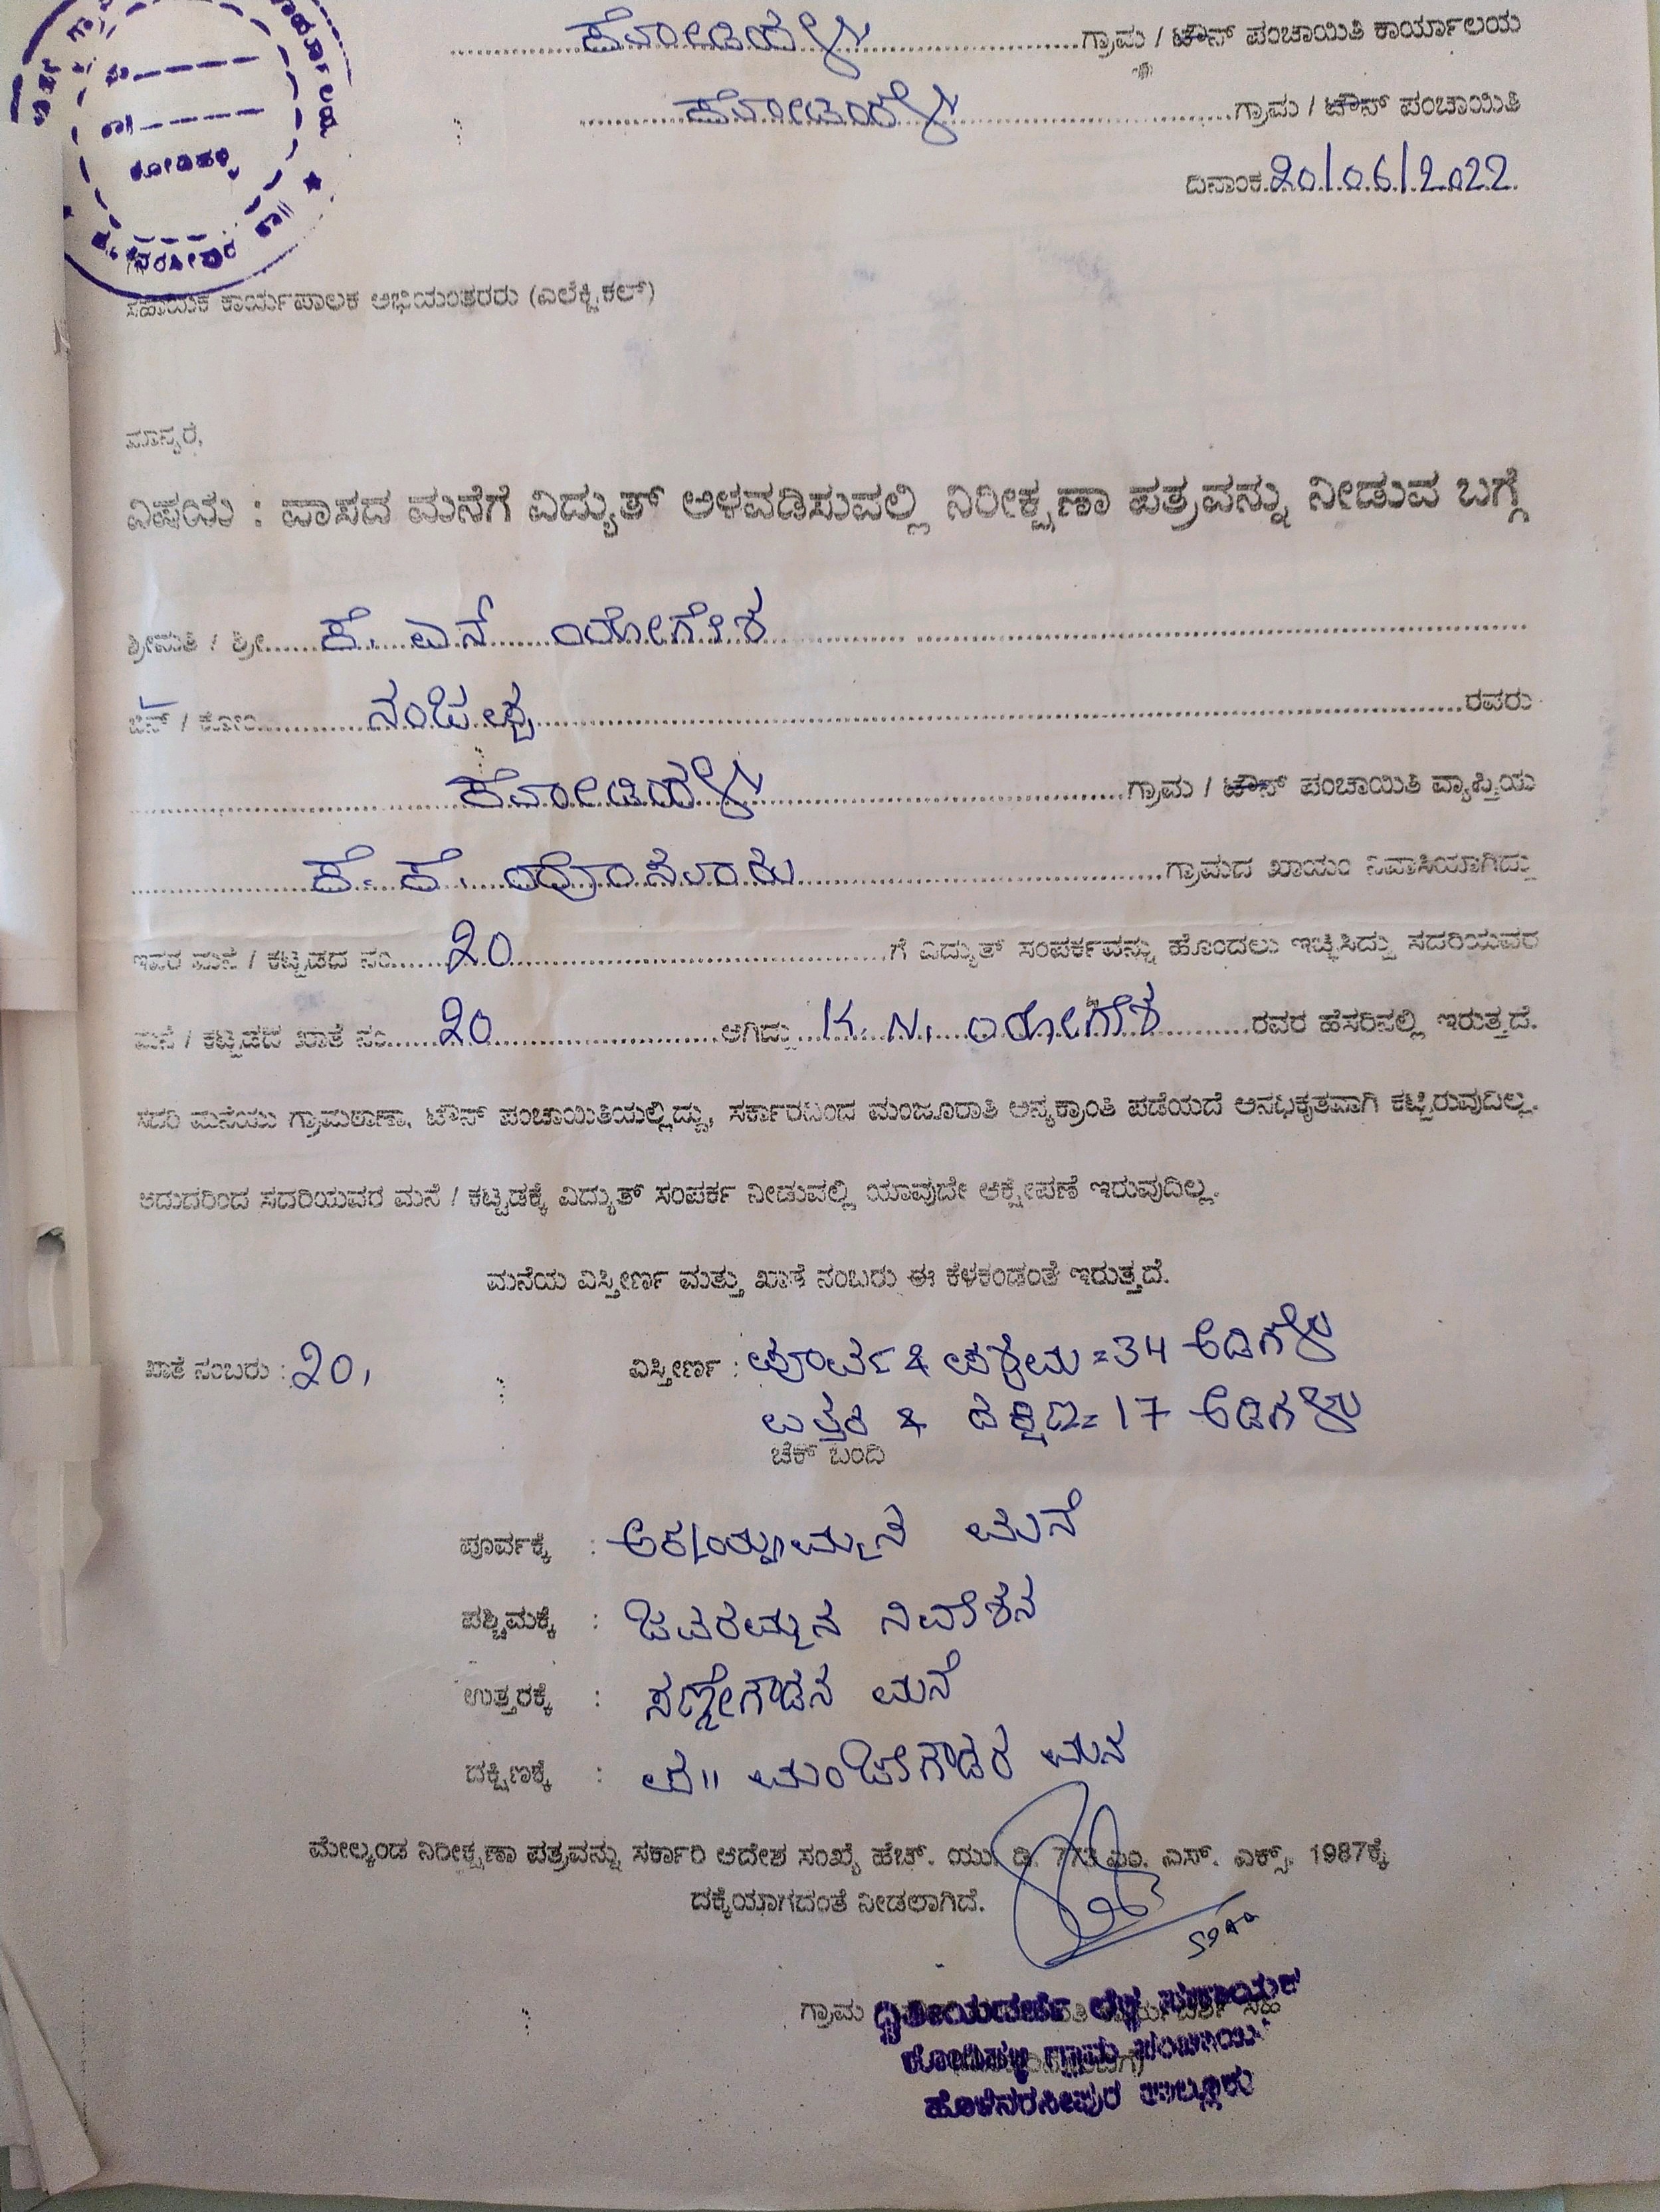 ಕೋಡಿಹಳ್ಳಿ ಗ್ರಾಮ / ಟೌನ್ ಪಂಚಾಯಿತಿ ಕಾರ್ಯಾಲಯ
ಕೋಡಿಹಳ್ಳಿ ಗ್ರಾಮ / ಟೌನ್ ಪಂಚಾಯಿತಿ
ದಿನಾಂಕ 20/06/2022
ಕೋಡಿಹಳ್ಳಿ
ಸಹಾಯಕ ಕಾರ್ಯಪಾಲಕ ಅಭಿಯಂತರರು (ಎಲೆಕ್ಟ್ರಿಕಲ್)
ಮಾನ್ಯರೆ,
ವಿಷಯ : ವಾಸದ ಮನೆಗೆ ವಿದ್ಯುತ್ ಅಳವಡಿಸುವಲ್ಲಿ ನಿರೀಕ್ಷಣಾ ಪತ್ರವನ್ನು ನೀಡುವ ಬಗ್ಗೆ
ಶ್ರೀಮತಿ / ಶ್ರೀ ಕೆ. ಎನ್ ಯೋಗೇಶ
ಬಿನ್ / ಕೋಂ ನಂಜಪ್ಪ ರವರು
ಕೋಡಿಹಳ್ಳಿ ಗ್ರಾಮ / ಟೌನ್ ಪಂಚಾಯಿತಿ ವ್ಯಾಪ್ತಿಯ
ಕೆ. ಕೆ. ಗ್ರಾಮದ ಖಾಯಂ ನಿವಾಸಿಯಾಗಿದ್ದು
ಇವರ ಮನೆ / ಕಟ್ಟಡದ ನಂ 20 ಗೆ ವಿದ್ಯುತ್ ಸಂಪರ್ಕವನ್ನು ಹೊಂದಲು ಇಚ್ಛಿಸಿದ್ದು ಸದರಿಯವರ
ಮನೆ / ಕಟ್ಟಡದ ಖಾತೆ ನಂ 20 ಆಗಿದ್ದು K. N. ಯೋಗೇಶ ರವರ ಹೆಸರಿನಲ್ಲಿ ಇರುತ್ತದೆ.
ಸದರಿ ಮನೆಯು ಗ್ರಾಮಠಾಣಾ, ಟೌನ್ ಪಂಚಾಯಿತಿಯಲ್ಲಿದ್ದು, ಸರ್ಕಾರದಿಂದ ಮಂಜೂರಾತಿ ಅನ್ಯಕ್ರಾಂತಿ ಪಡೆಯದೆ ಅನಧಿಕೃತವಾಗಿ ಕಟ್ಟಿರುವುದಿಲ್ಲ.
ಆದುದರಿಂದ ಸದರಿಯವರ ಮನೆ / ಕಟ್ಟಡಕ್ಕೆ ವಿದ್ಯುತ್ ಸಂಪರ್ಕ ನೀಡುವಲ್ಲಿ ಯಾವುದೇ ಆಕ್ಷೇಪಣೆ ಇರುವುದಿಲ್ಲ.
ಮನೆಯ ವಿಸ್ತೀರ್ಣ ಮತ್ತು ಖಾತೆ ನಂಬರು ಈ ಕೆಳಕಂಡಂತೆ ಇರುತ್ತದೆ.
ಖಾತೆ ನಂಬರು : 20, ವಿಸ್ತೀರ್ಣ : ಪೂರ್ವ & ಪಶ್ಚಿಮ = 34 ಅಡಿಗಳು
ಉತ್ತರ & ದಕ್ಷಿಣ = 17 ಅಡಿಗಳು
ಚೆಕ್ ಬಂದಿ
ಪೂರ್ವಕ್ಕೆ : ಮನೆ
ಪಶ್ಚಿಮಕ್ಕೆ : ಜವರಮ್ಮನ ನಿವೇಶನ
ಉತ್ತರಕ್ಕೆ : ಸಣ್ಣೇಗೌಡನ ಮನೆ
ದಕ್ಷಿಣಕ್ಕೆ : ಮಂಜೇಗೌಡರ ಮನೆ
ಮೇಲ್ಕಂಡ ನಿರೀಕ್ಷಣಾ ಪತ್ರವನ್ನು ಸರ್ಕಾರಿ ಆದೇಶ ಸಂಖ್ಯೆ ಹೆಚ್. ಯು. ಡಿ. ಎಂ. ಎಸ್. ಎಕ್ಸ್. 1987ಕ್ಕೆ
ದಕ್ಕೆಯಾಗದಂತೆ ನೀಡಲಾಗಿದೆ.
ಗ್ರಾಮ ದ್ವಿತೀಯದರ್ಜೆ ಲೆಕ್ಕ ಸಹಾಯಕ
ಕೋಡಿಹಳ್ಳಿ ಗ್ರಾಮ ಪಂಚಾಯಿತಿ
ಹೊಳೆನರಸೀಪುರ ತಾಲ್ಲೂಕು